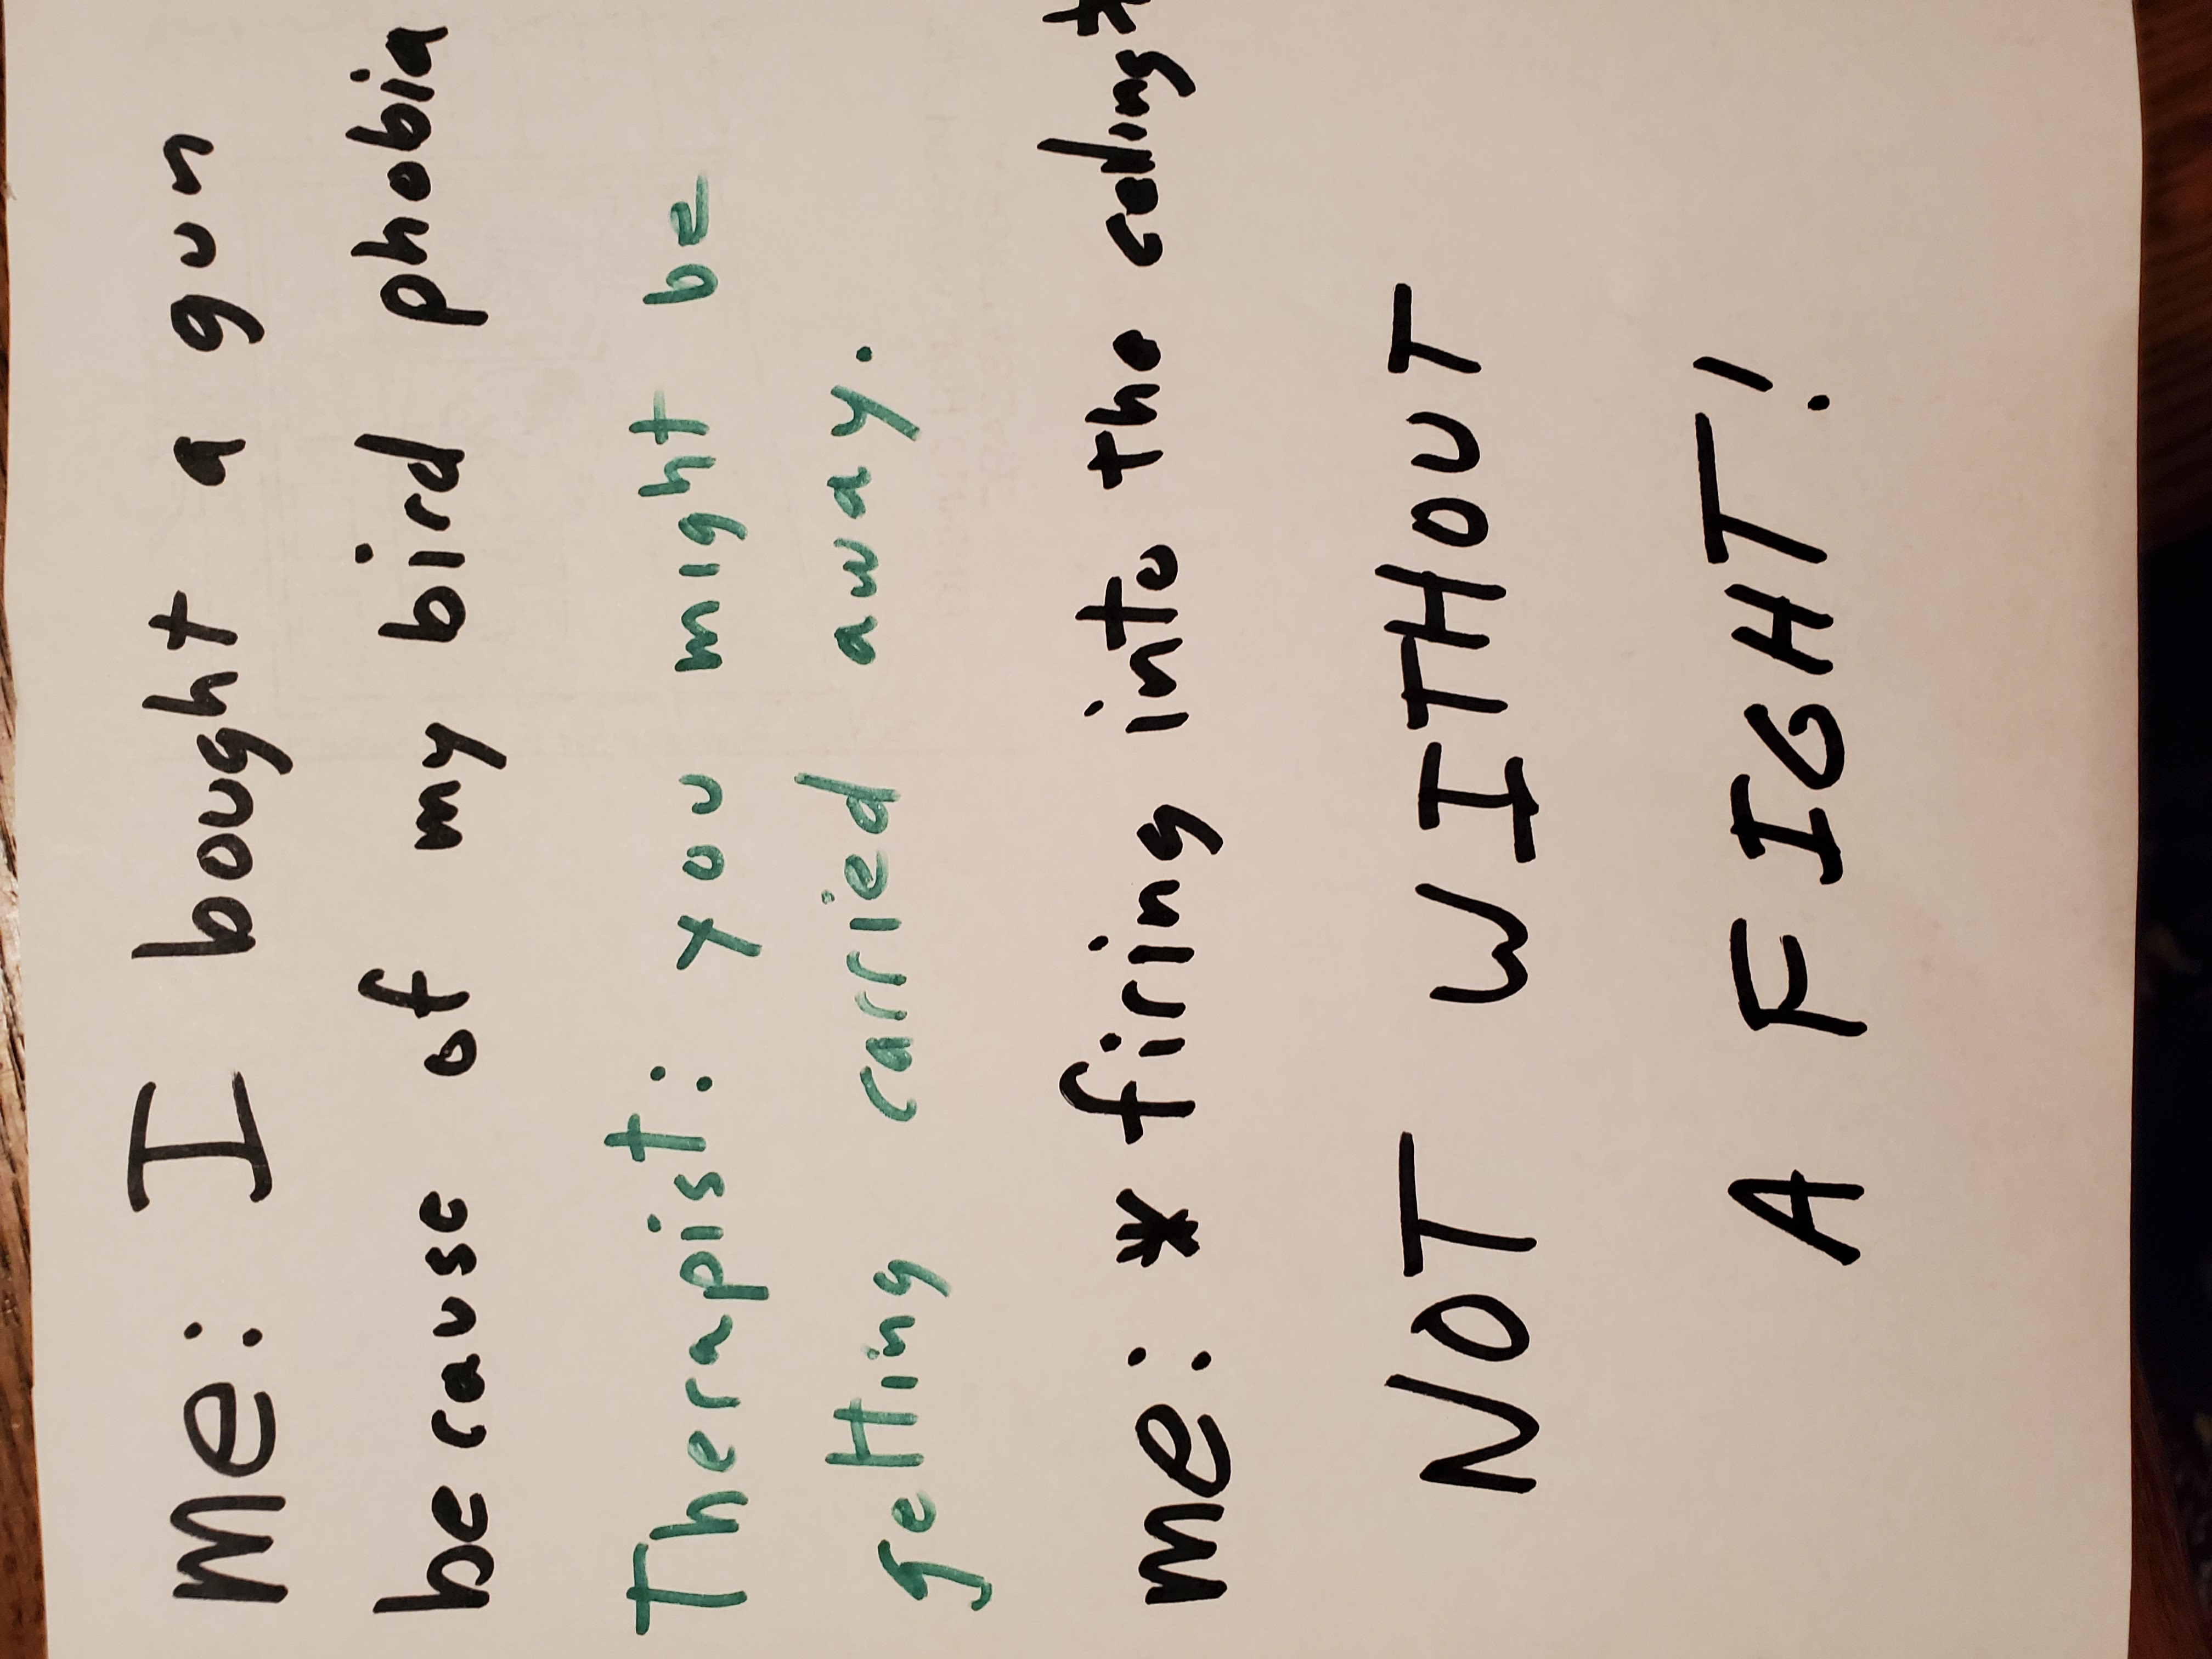 me: I bought a gun
because of my bird phobia
Therapist: you might be
getting carried away.
me: *firing into the ceiling*
NOT WITHOUT
A FIGHT!